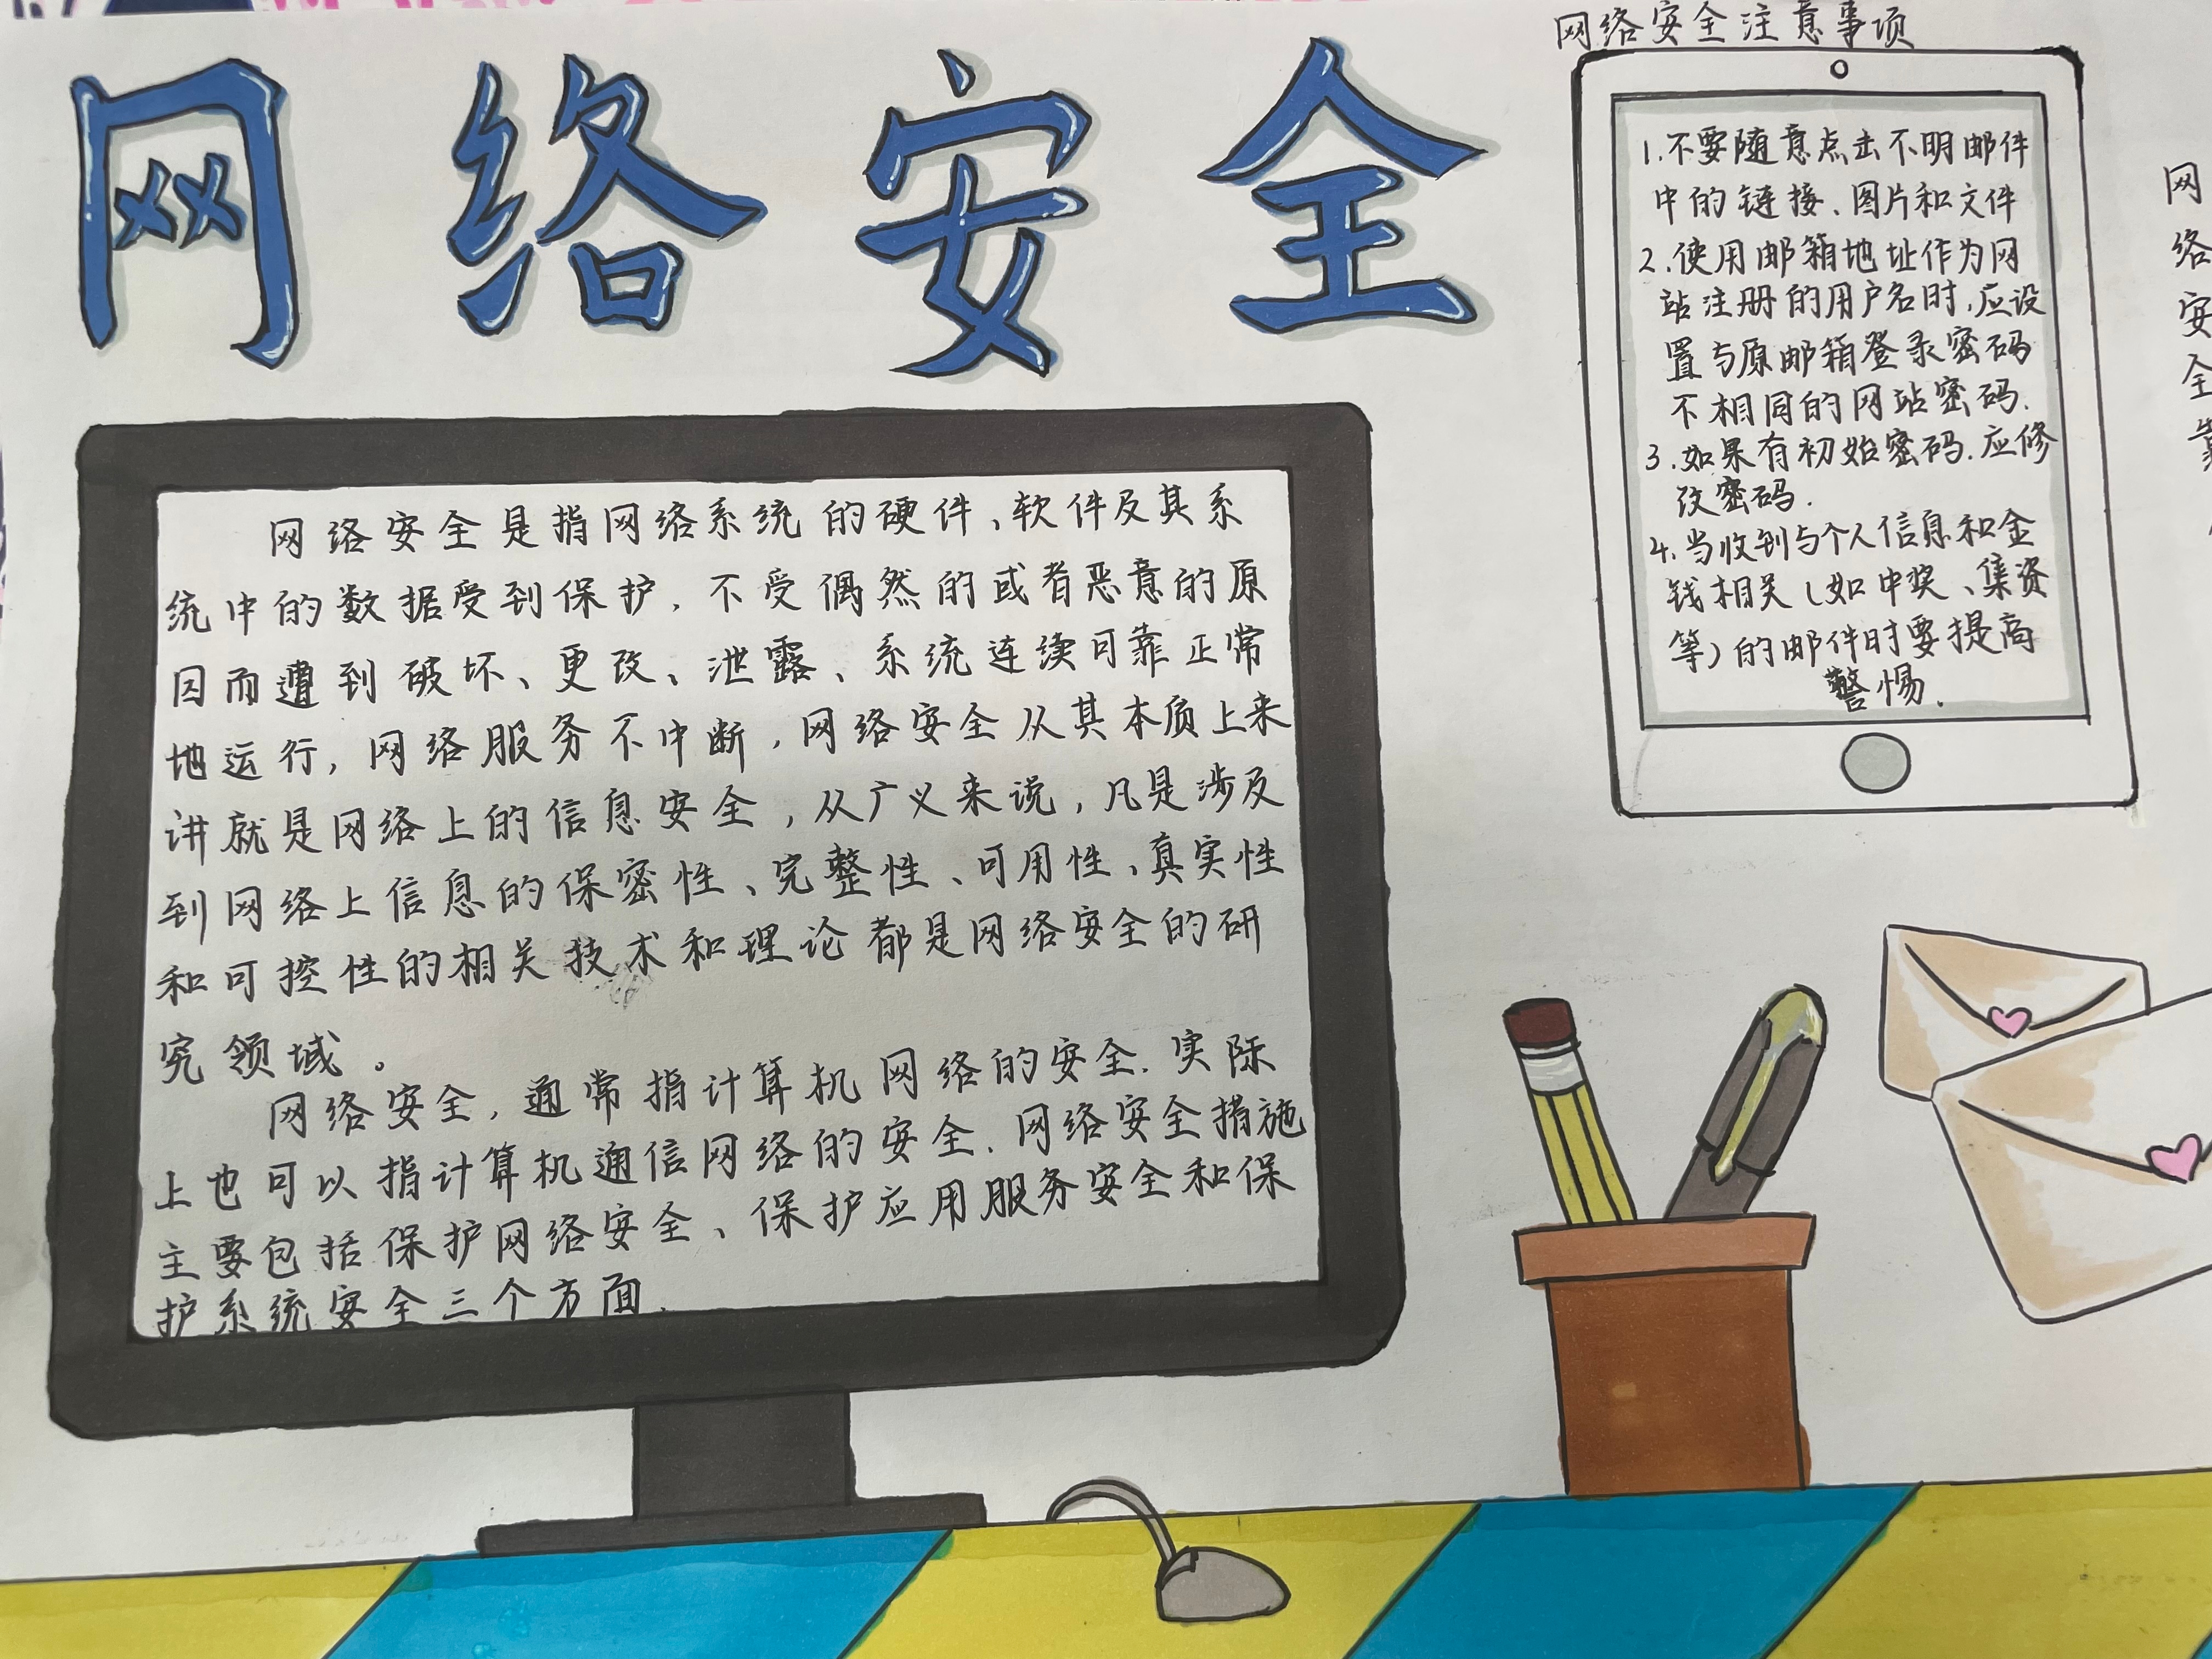 网络安全
网络安全是指网络系统的硬件、软件及其系
统中的数据受到保护,不受偶然的或者恶意的原
因而遭到破坏、更改、泄露、系统连续可靠正常
地运行,网络服务不中断,网络安全从其本质上来
讲就是网络上的信息安全,从广义来说,凡是涉及
到网络上信息的保密性、完整性、可用性、真实性
和可控性的相关技术和理论都是网络安全的研
究领域。
网络安全,通常指计算机网络的安全.实际
上也可以指计算机通信网络的安全.网络安全措施
主要包括保护网络安全、保护应用服务安全和保
护系统安全三个方面.
网络安全注意事项
1.不要随意点击不明邮件
中的链接、图片和文件
2.使用邮箱地址作为网
站注册的用户名时,应设
置与原邮箱登录密码
不相同的网站密码.
3.如果有初始密码.应修
改密码.
4.当收到与个人信息和金
钱相关(如中奖、集资
等)的邮件时要提高
警惕.
网络安全靠